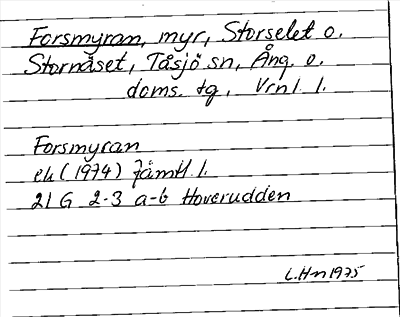 Forsmyran, myr, Storselet o.
Stornäset, Tåsjö sn, Ång. o.
doms. tg, Vrnl. l.
Forsmyran
ek (1974) Jämtl. l.
21 G 2-3 a-b Hoverudden
L.Hn 1975